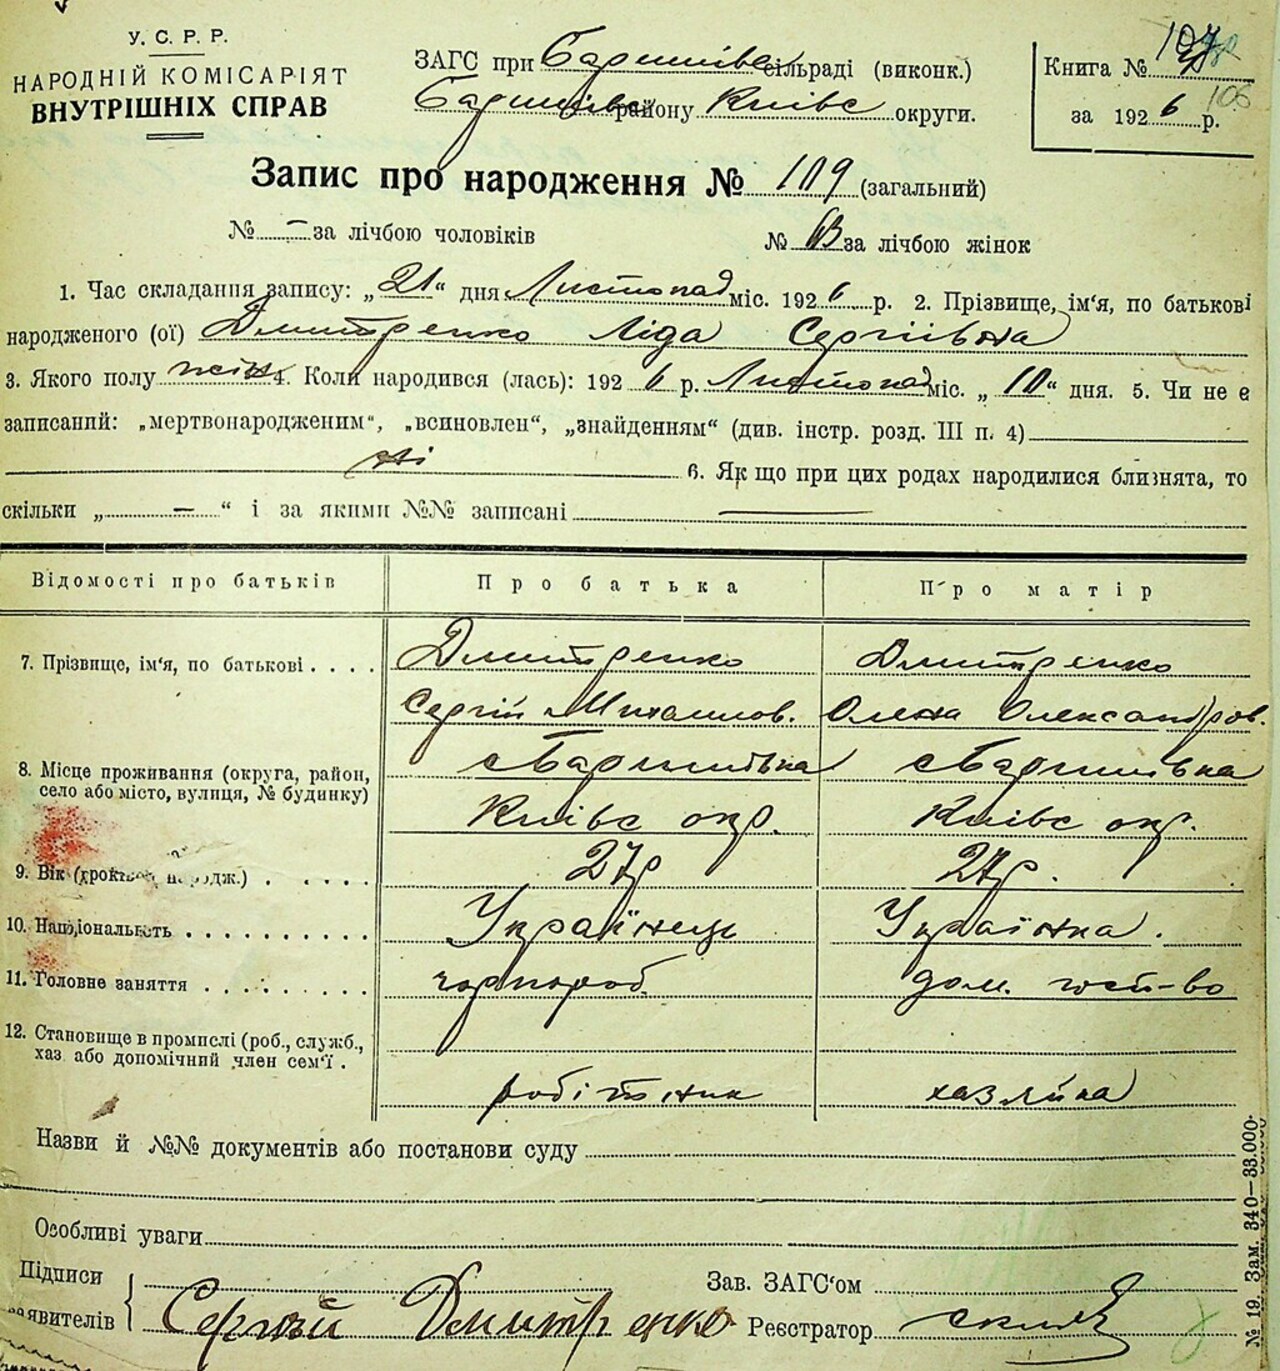 У. С. Р. Р.
НАРОДНІЙ КОМІСАРІЯТ
ВНУТРІШНІХ СПРАВ
ЗАГС при Баришівс сільраді (виконк.)
Баришівс району Київс округи.
Книга №
за 1926 р.
106
Запис про народження № 109 (загальний)
№ – за лічбою чоловіків
№ за лічбою жінок
1. Час складання запису: „21“ дня Листопад міс. 1926 р. 2. Прізвище, ім'я, по батькові
народженого (ої) Дмитренко Ліда Сергіївна
3. Якого полу жін 4. Коли народився (лась): 1926 р. Листопад міс. „10“ дня. 5. Чи не є
записаний: „мертвонародженим“, „всиновлен“, „знайденням“ (див. інстр. розд. III п. 4)
ні 6. Як що при цих родах народилися близнята, то
скільки „ — “ і за якими №№ записані —
Відомості про батьків Про батька Про матір
7. Прізвище, ім'я, по батькові . . . . Дмитренко Дмитренко
Сергій Михаилов. Олена Олександров.
8. Місце проживання (округа, район, с Баришівка с Баришівка
село або місто, вулиця, № будинку)
Київс окр. Київс окр.
9. Вік 27р 27р.
10. Національність . . . . . . . . . . Українець Українка.
11. Головне заняття . . . . . . . . . чорнороб. дом. госп-во
12. Становище в промислі (роб., служб.,
хаз або допомічний член сем'ї .
робітник хазяйка
Назви й №№ документів або постанови суду
Особливі уваги
Підписи
заявителів Сергій Дмитренко
Зав. ЗАГС'ом
Реєстратор
№ 19. Зам. 340—33.000·